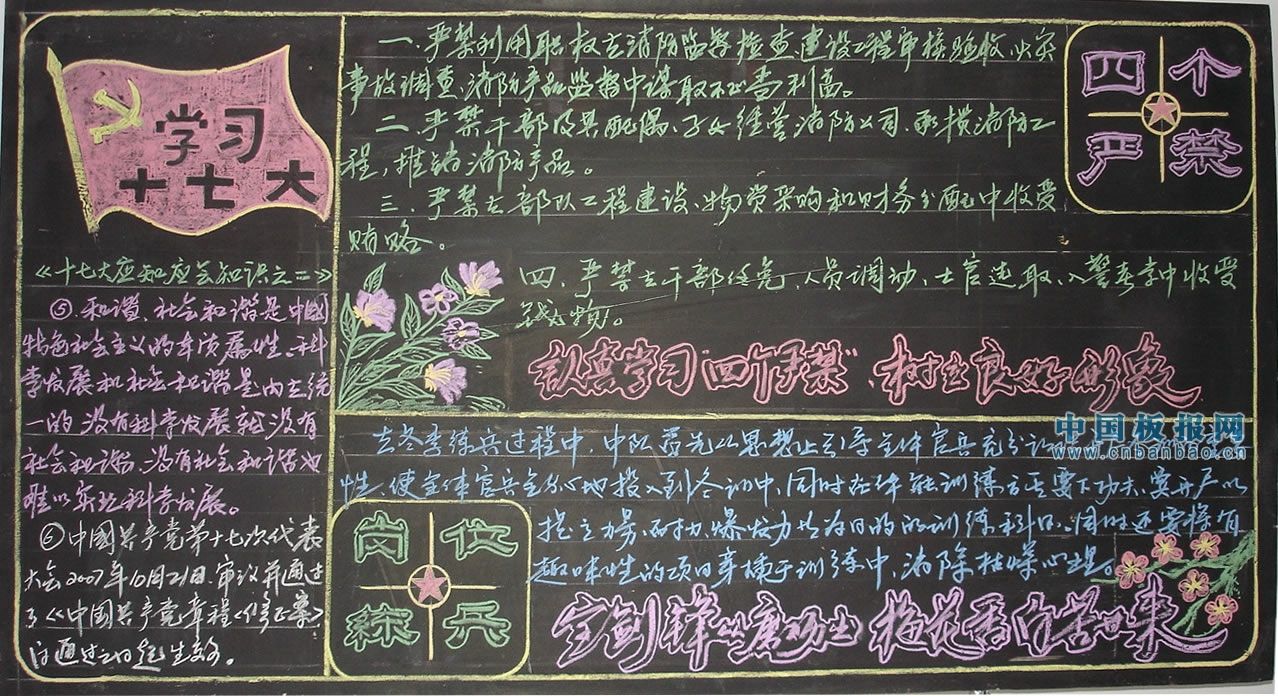 学习
十七大
《十七大应知应会知识之二》
⑤和谐、社会和谐是中国
特色社会主义的本质属性。科
学发展和社会和谐是内在统
一的。没有科学发展就没有
社会和谐，没有社会和谐也
难以实现科学发展。
⑥中國共产党第十七次代表
大会2007年10月21日审议并通过
了《中國共产党章程<修正案>
自通过之日起生效。
一、严禁利用职权在消防监督检查、建设工程审核验收、火灾
事故调查、消防产品监督中谋取不正当利益。
二、严禁干部及其配偶、子女经营消防公司、承揽消防工
程，推销消防产品。
三、严禁在部队工程建设、物资采购和财务分配中收受
贿赂。
四、严禁在干部任免、人员调动、士官选取、入警考学中收受
钱物。
四个
严禁
认真学习"四个严禁"，树立良好形象
去冬季练兵过程中，中队首先从思想上引导全体官兵充分认
性，使全体官兵全身心地投入到冬训中，同时在体能训练方面要下功夫，要开展以
提高力量、耐力、爆发力等为目的的训练科目，同时还要将有
趣味性的项目穿插于训练中，消除枯燥心理。
岗位
练兵
宝剑锋从磨砺出 梅花香自苦寒来
中国板报网
www.cnbanbao.cn